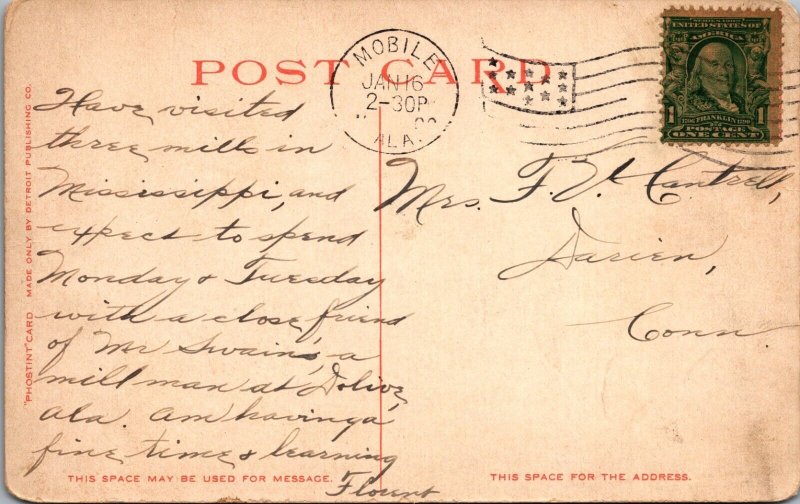 POST CARD
MOBILE
JAN 16
2-30P
ALA.
SERIES 1902
UNITED STATES OF
AMERICA
1 1
FRANKLIN
POSTAGE
ONE CENT
"PHOSTINT" CARD MADE ONLY BY DETROIT PUBLISHING CO.
Have visited
three mills in
Mississippi, and
expect to spend
Monday & Tuesday
with a close friend
of Mr Swain's, a
mill man at
Ala. Am having a
fine time & learning
Florent
THIS SPACE MAY BE USED FOR MESSAGE.
Mrs. F. V. Cantrell,
Darien,
Conn.
THIS SPACE FOR THE ADDRESS.